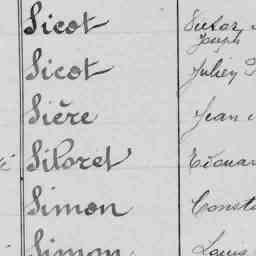 Sicot Victor
Joseph
Sicot Julien
Sière Jean
Siloret Edouar
Simon Const
Simon Louis